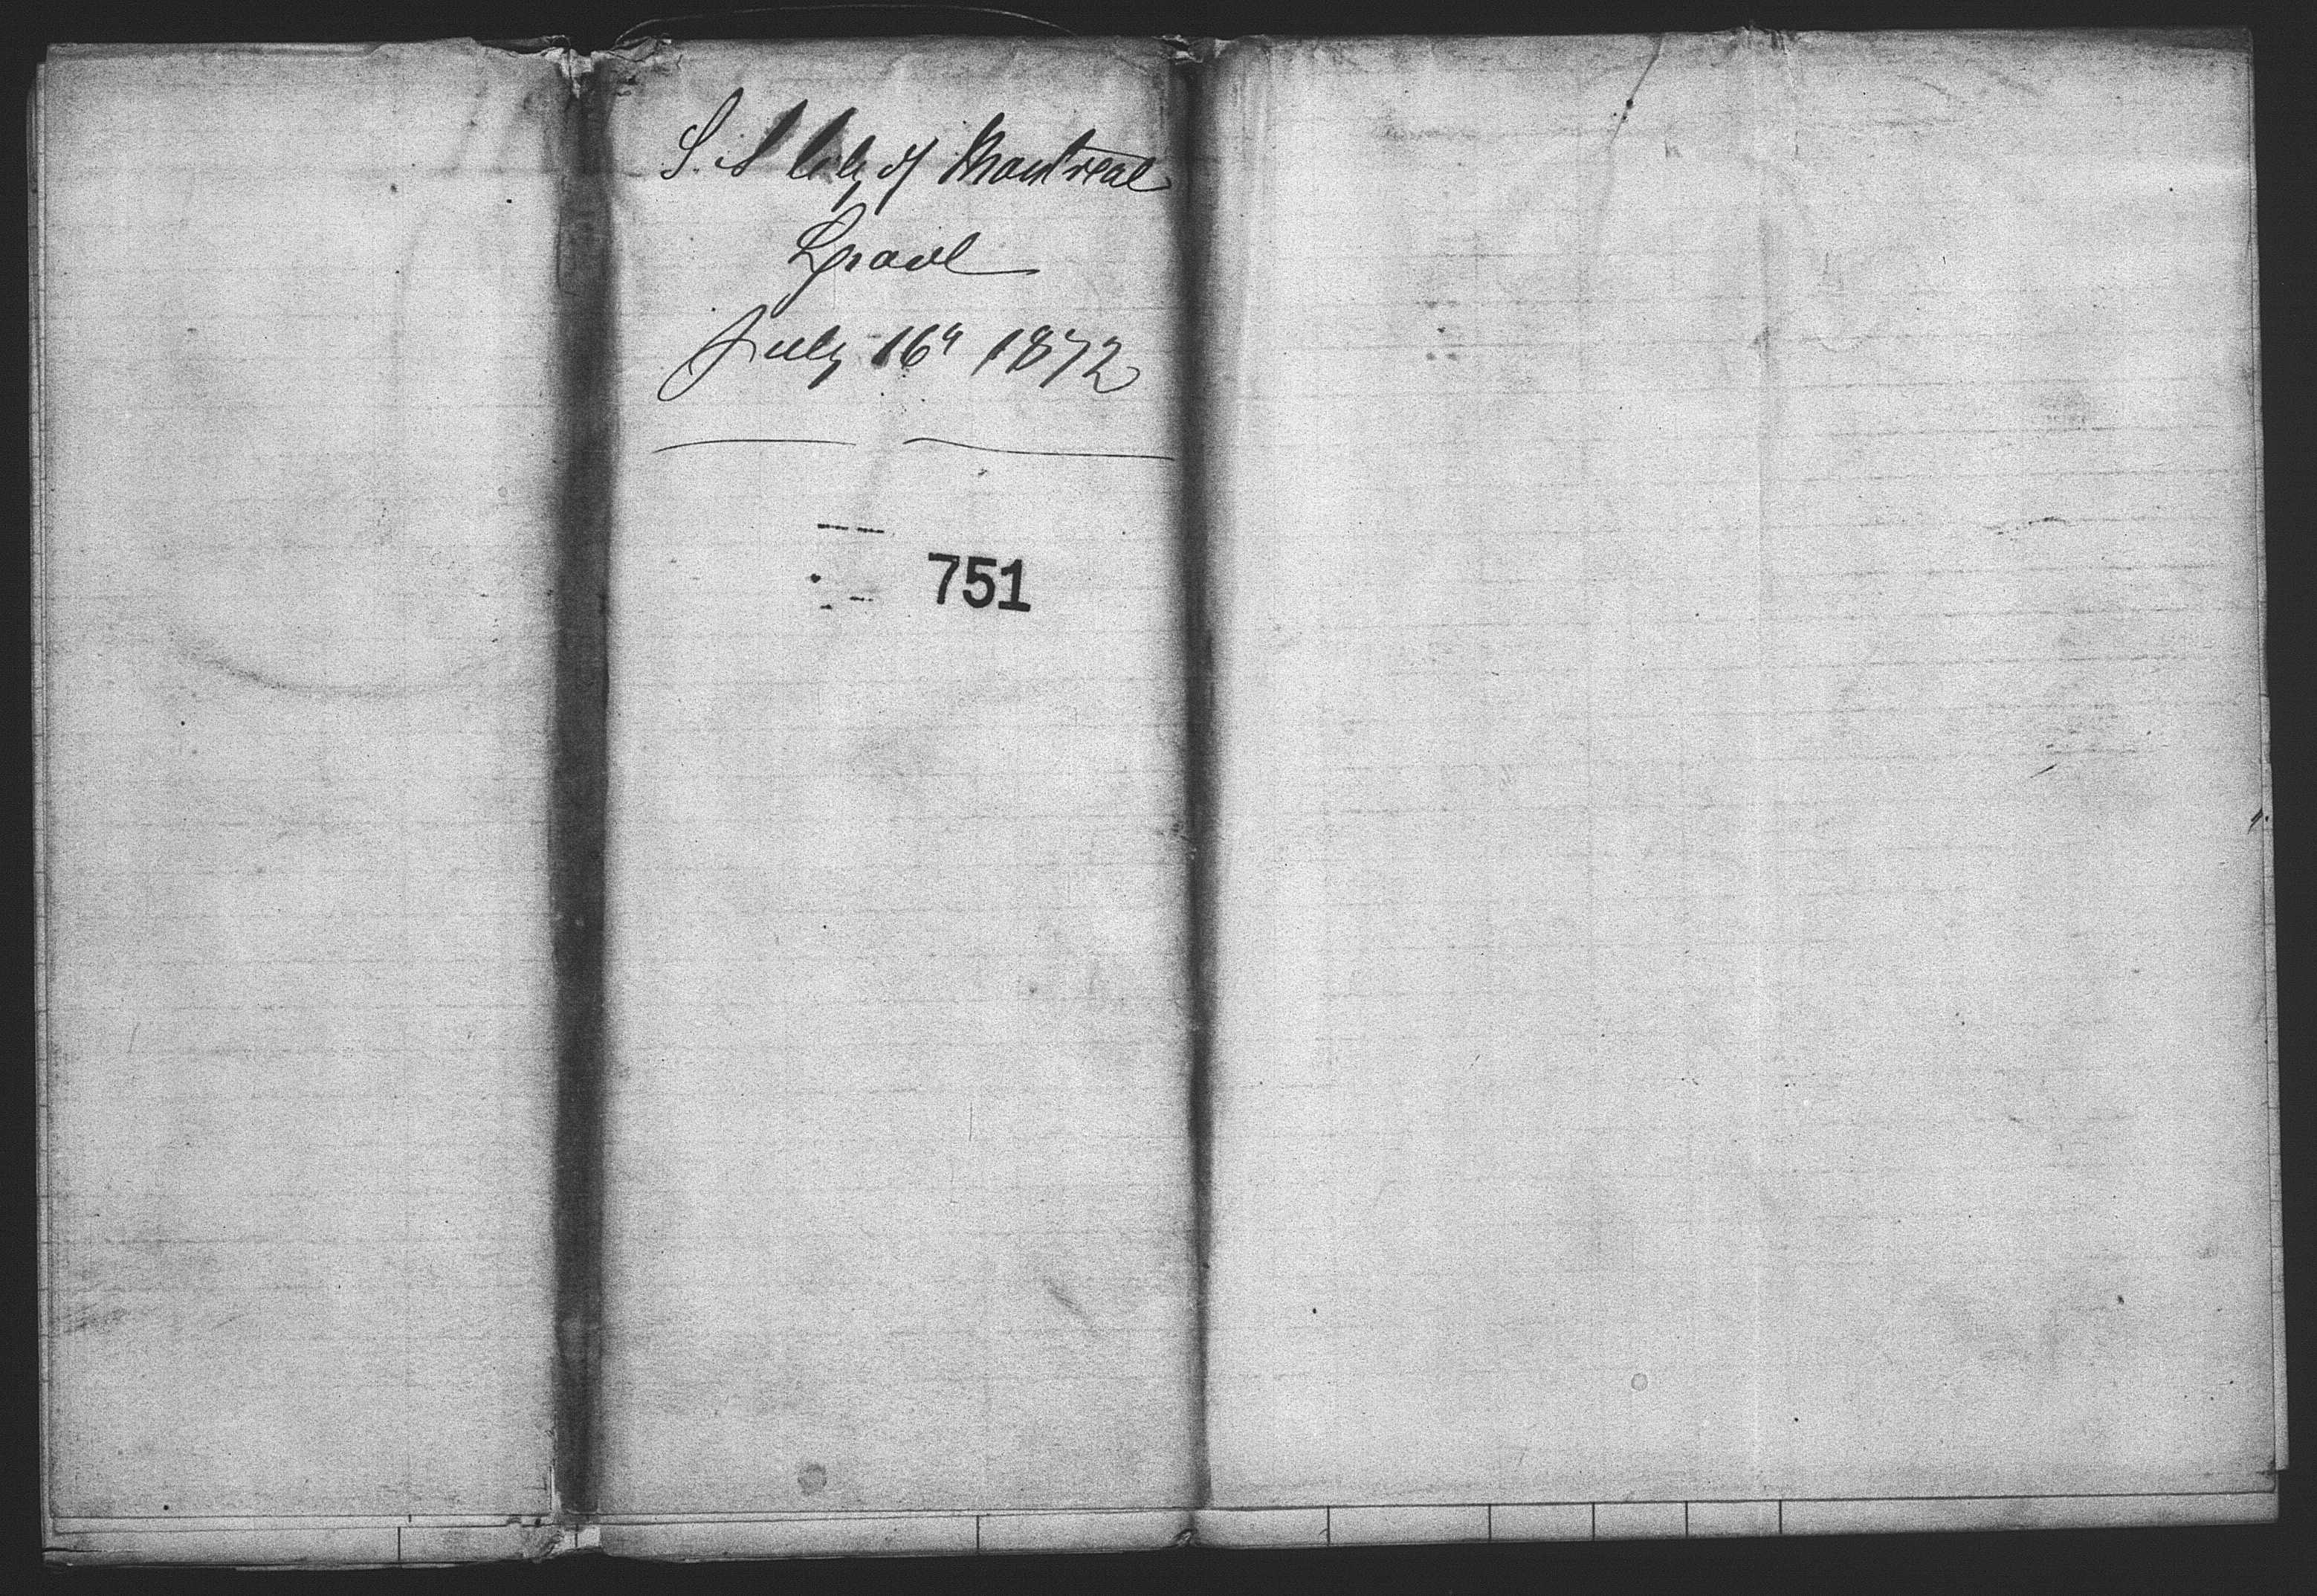 S.S City of Montreal
July 16" 1872
751